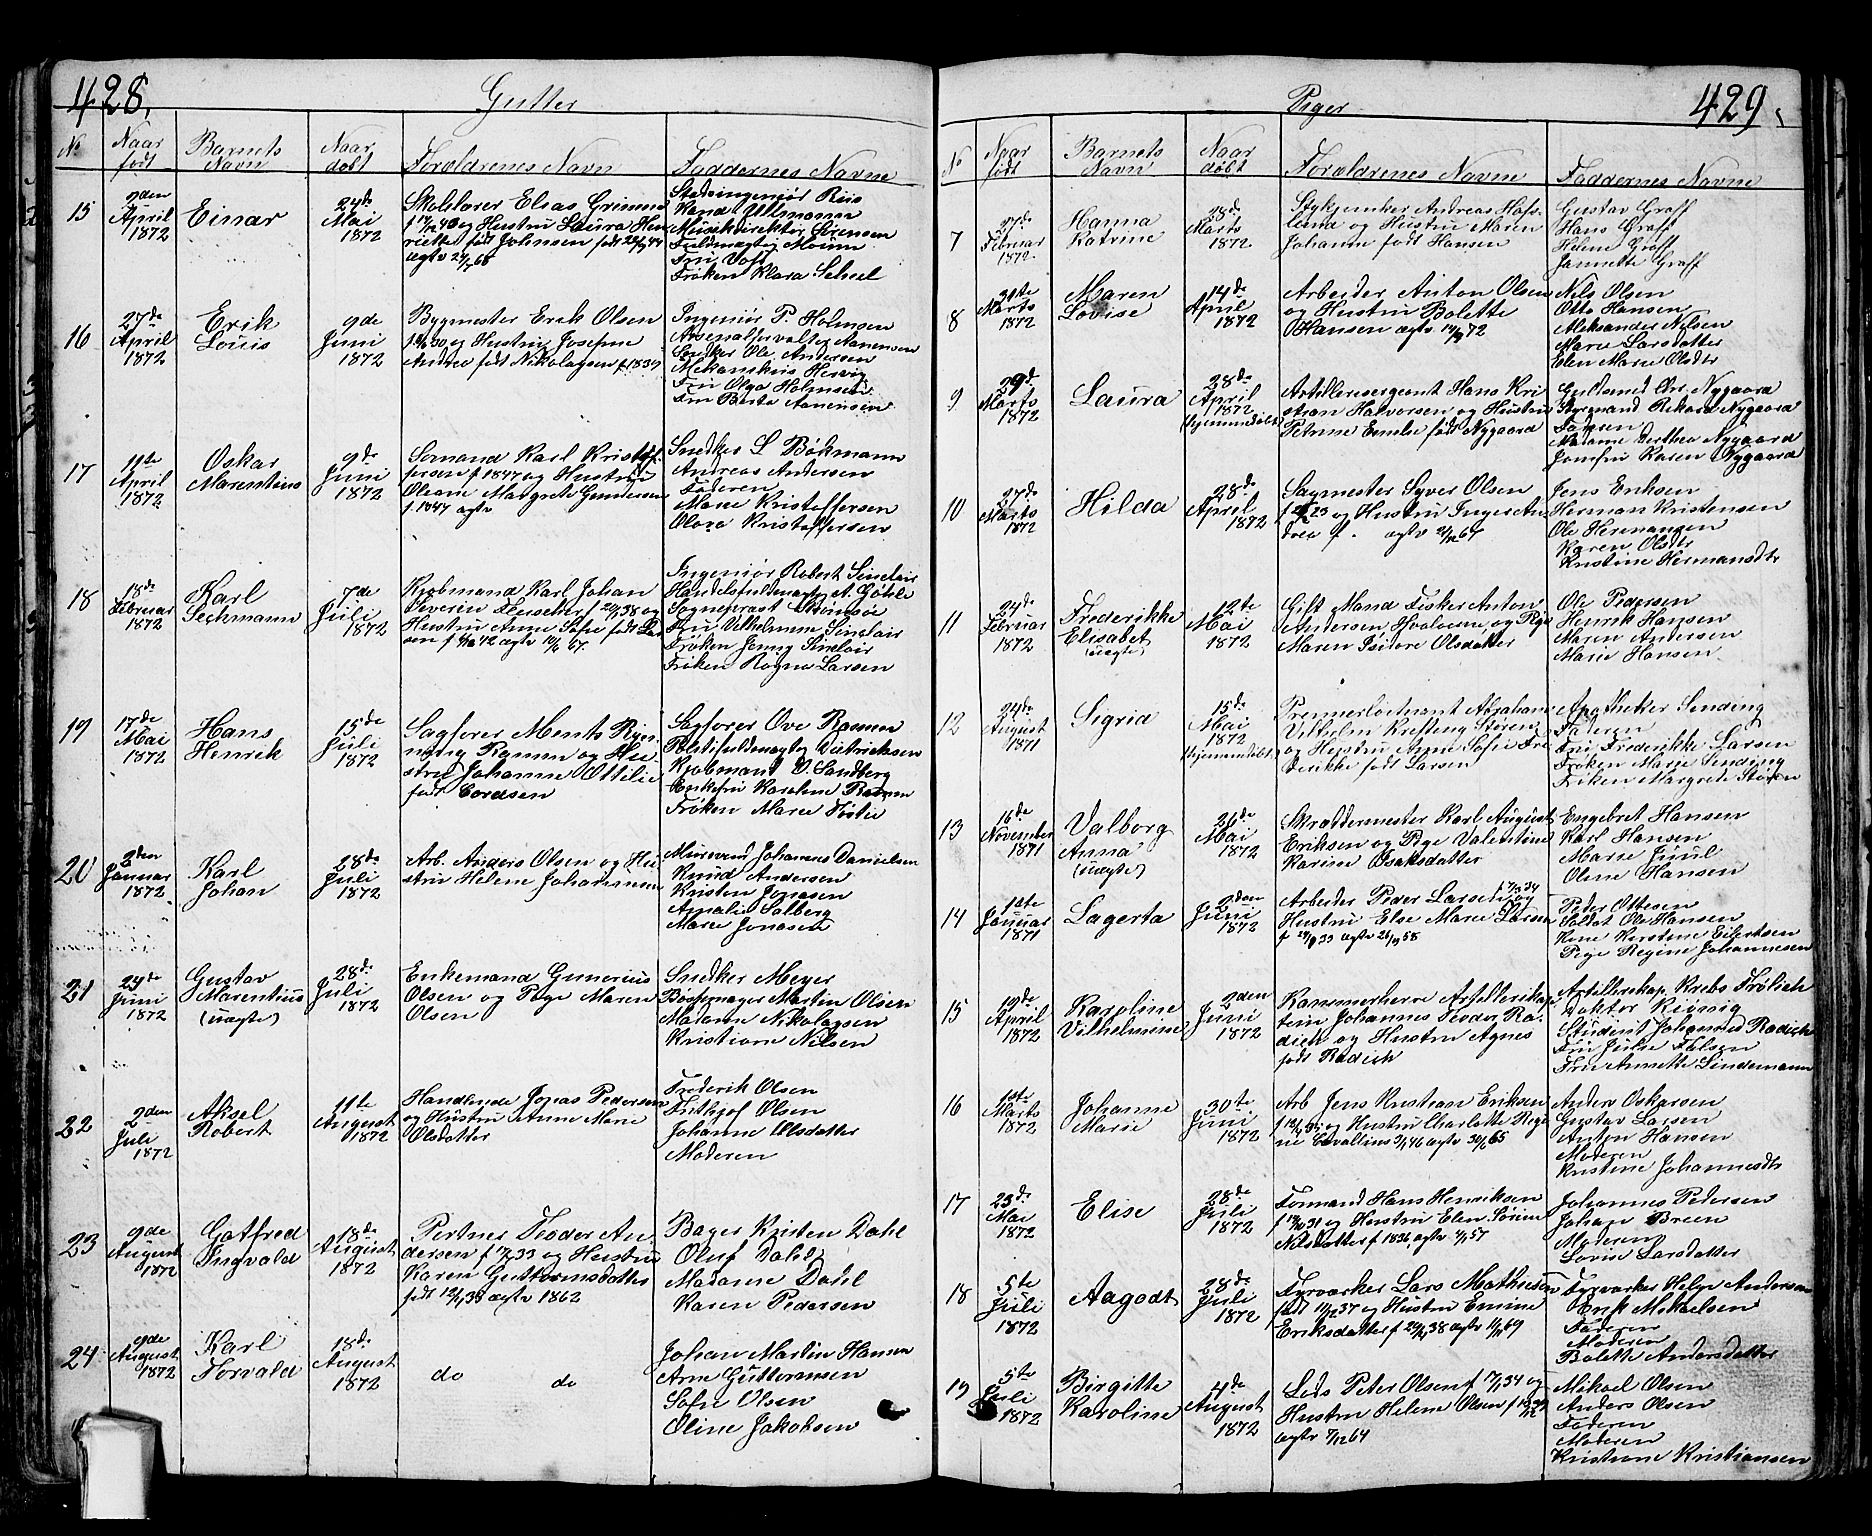 428.
Gutter
No
Naar født
Barnets Navn
Naar døbt
Forældrenes Navn
Faddernes Navne
15
2den April 1872
Einar
24de Mai 1872
Skolelærer Elias
og Hustru Laura Hen
riette født Johnsen født
Stadsingeniør Riis
Kand. Ullmann
Musikdirektør Sørensen
Fuldmægtig Moum
Fru Voft
Frøken Klara Scheel
16
27de April 1872
Erik
Louis
9de Juni 1872
Bygmester Erik Olsen
og Hustru Josefine
Andrea født Nikolaysen f 1839
Ingeniør P. Holmsen
Arsenalforvalter Aanensen
Snedker Ole Andersen
Mekanikus Hervig
Fru Olga Holmsen
Fru Berta Aanensen
17
11te April 1872
Oskar
Marentius
9de Juni 1872
Sømand Karl Kristof-
fersen f 1847 og Hustru
Oleane Margrete Gundersen
f. 1847 ægtv
Snedker L Bøkmann
Andreas Andersen
Faderen
Marie Kristoffersen
Olava Kristoffersen
18
18de Februar 1872
Karl
Sechmann
7de Juli 1872
Kjøbmand Karl Johan
Severin Fleischer f 20/ 38 og
Hustru Anne Sofie født Lar
sen f 42 ægtv 67.
Ingeniør Robert Sinclair
Handelsfuldmægt A. Gøhle
Sogneprest
Fru Vilhelmine Sinclair
Frøken Jenny Sinclair
Frøken Ragna Larsen
19
17de Mai 1872
Hans
Henrik
15de Juli 1872
Sagfører Mentz Ryn-
ning Rynnen og Hu
stru Johanne Ottilie
født Cordsen
Sagfører Ove
Politifuldmægtig Diedriksen
Kjøbmand O. Sandberg
Enkefru Karoline
Frøken Marie
20
2den Januar 1872
Karl
Johan
28de Juli 1872
Arb. Anders Olsen og Hu
stru Helene Johannesen
Murermd Johannes Danielsen
Knud Andersen
Kristen Jonasen
Amalie Solberg
Marie Jonasen
21
24de Juni 1872
Gustav
Marentius
(uægte)
28de Juli 1872
Enkemand Gunerius
Olsen og Pige Maren
Olsen
Snedker Meyer
Martin Olsen
Madame Nikolaysen
Kristiane Nilsen
22
2den Juli 1872
Aksel
Robert
11te August 1872
Handlende Jonas Pedersen
og Hustru Anne Marie
Olsdatter
Frederik Olsen
Frithjof Olsen
Johanne Olsdatter
Moderen
23
9de August 1872
Gotfred
Ingvald
18de August 1872
Teodor An
dersen f 33 og Hustru
Karen Guttormsdatter
født 12/ 38 ægtv 1862
Bager Kristen Dahl
Oluf Dahl
Madame Dahl
Karen Pedersen
24
9de August 1872
Karl
Torvald
18de August 1872
do do
Johan Martin Hansen
Arne Guttormsen
Sofie Olsen
Oline Jakobsen
429.
Piger
No
Naar født
Barnets Navn
Naar døbt
Forældrenes Navne
Faddernes Navne
7
27de Februar 1872
Hanna
Katrine
28de Marts 1872
Stykjunker Andreas Hafs-
lund og Hustru Maren
Johanne født Hansen
Gustav Graff
Hans Graff
Helene Graff
Jannette Graff
8
31te Marts 1872
Maren
Lovise
14de April 1872
Arbeider Anton Olsen
og Hustru Bolette
Hansen ægtv 14/ 72
Nils Olsen
Otto Hansen
Aleksander Nilsen
Marie Larsdatter
Elen Marie Olsdtr
9
29de Marts 1872
Laura
28de April 1872
Hjemmedøbt
Artillerisergeant Hans Kri
stian Halvorsen og Hustru
Petrine Emilie født Nygaard
Guldsmed Chr. Nygaard
Styrmand Rikard Nygaard
Faderen
Madame Dorthea Nygaard
Jomfru Karen Nygaard
10
27de Marts 1872
Hilda
28de April 1872
Sagmester Syver Olsen
f 23 og Hustru Inger An
drea f. ægtv 67
Jens Eriksen
Herman Kristensen
Ole Hermansen
Karen Olsdtr
Kristine Hermansdtr
11
24de Februar 1872
Frederikke
Elisabet
(uægte)
12te Mai 1872
Gift Mand Fisker Anton
Andersen Hvaløen og Pige
Maren Isidore Olsdatter
Ole Pedersen
Henrik Hansen
Maren Andersen
Marie Hansen
12
24de August 1871
Sigrid
15de Mai 1872
Hjemmedøbt
Premierløitnant Abraham
Vilhelm Krefting Støren
og Hustru Anne Sofie Fre
derikke født Larsen
Apotheker Sinding
Faderen
Fru Frederikke Larsen
Frøken Marie Sinding
Frøken Margrete Støren
13
16de November 1871
Valborg
Anna
(uægte)
26de Mai 1872
Skræddermester Karl August
Eriksen og Pige Valentine
Karine Isaksdatter
Engebret Hansen
Karl Hansen
Marie Juul
Oline Hansen
14
1ste Januar 1871
Lagerta
2den Juni 1872
Arbeider Peder Larsen f 34 og
Hustru Else Marie Larsen
f 33 ægtv 26/ 58
Peder Ottesen
Soldat Ole Hansen
Kone Kirstine Eilertsen
Pige Regine Johannesen
15
19de April 1872
Karoline
Vilhelmine
2den Juni 1872
Kammerherre Artillerikap
tein Johannes Teodor Ra-
dich og Hustru Agnes
født Radich
Artillerikap. Krebs Frølich
Doktor Kiønig
Student Johannes Radich
Fru Julie Fulsen
Fru Annette Lindemann
16
1ste Marts 1872
Johanne
Marie
30te Juni 1872
Arb Jens Kristian Eriksen
og Hustru Charlotte Regi
ne Cavallius 46 ægtv 30/ 65
Anders Oskarsen
Gustav Larsen
Anton Hansen
Moderen
Kristine Johannesdtr
17
23de Mai 1872
Elise
28de Juli 1872
Formand Hans Henriksen
f 31 og Hustru Elen Sørine
Nilsdatter f 1836 ægtv 57
Johannes Pedersen
Johan Breen
Moderen
Lovise Larsdatter
18
5te Juli 1872
Aagodt
28de Juli 1872
Fyrværker Lars Mathiesen
født 37 og Hustru Emma
Eriksdatter f 38 ægtv 69
Fyrværker Helge Andersen
Erik Mikaelsen
Faderen
Moderen
Bolette Andersdatter
19
5te Juli 1872
Birgitte
Karoline
4de August 1872
Lods Peter Olsen f 34 og
Hustru Helene Olsen f
ægtv 7/12 64
Mikael Olsen
Anders Olsen
Faderen
Moderen
Kristiane Kristiansen